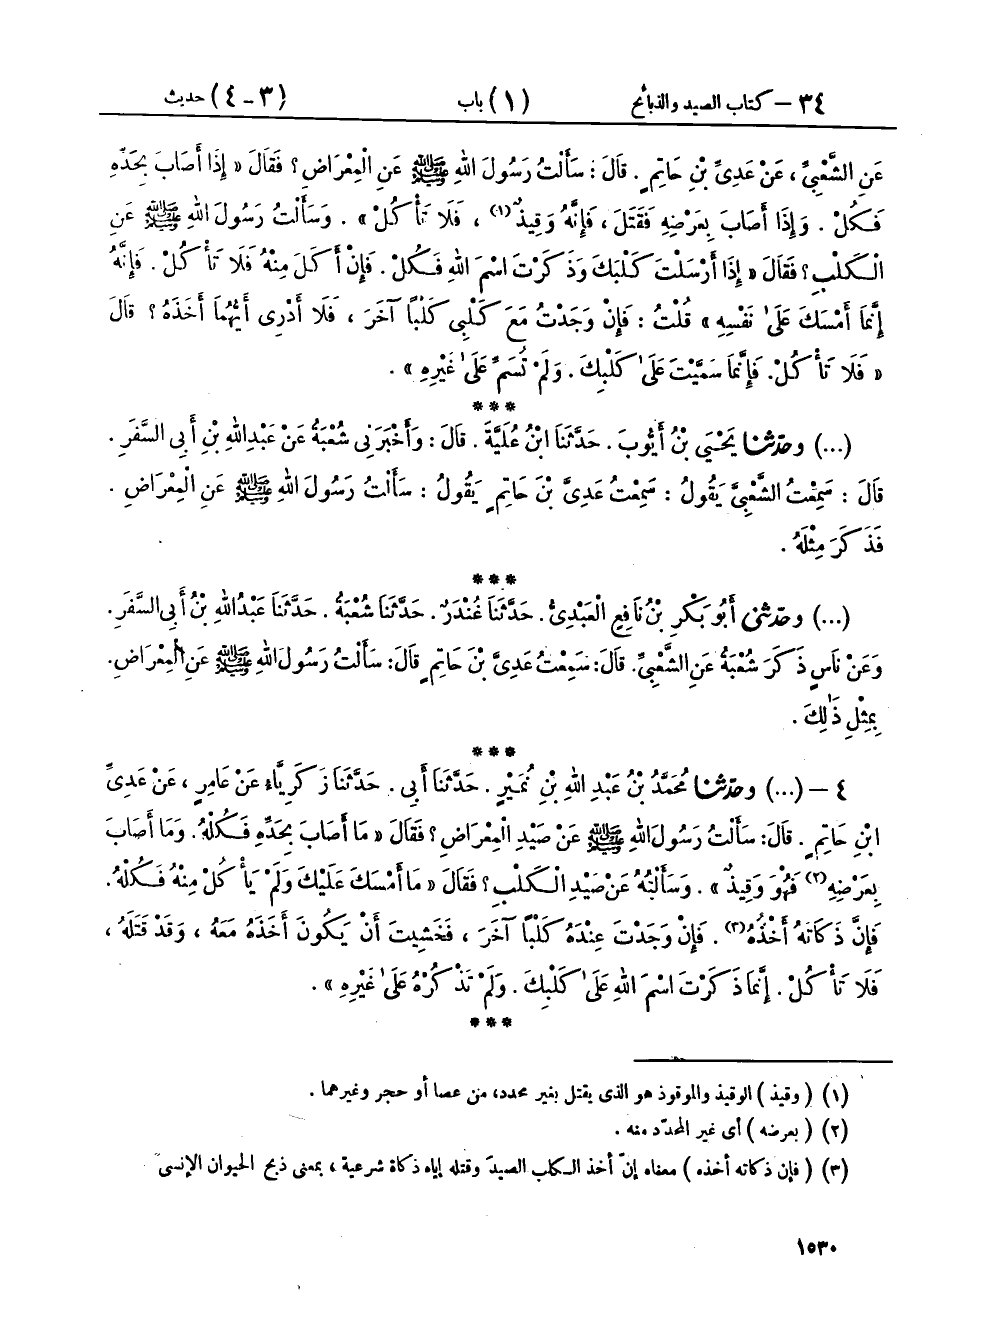 ٣٤ – كتاب الصيد والذبائح (١) باب (٣-٤) حديث
عَنِ الشَّعْبِىِّ ، عَنْ عَدِىِّ بْنِ حَاتِمٍ . قَالَ : سَأَلْتُ رَسُولَ اللهِ ﷺ عَنِ الْمِعْرَاضِ ؟ فَقَالَ « إِذَا أَصَابَ بِحَدِّهِ
فَكُلْ . وَإِذَا أَصَابَ بِعَرْضِهِ فَقَتَلَ ، فَإِنَّهُ وَقِيذٌ(١) ، فَلَا تَأْكُلْ » . وَسَأَلْتُ رَسُولَ اللهِ ﷺ عَنِ
الْكَلْبِ ؟ فَقَالَ « إِذَا أَرْسَلْتَ كَلْبَكَ وَذَكَرْتَ اسْمَ اللهِ فَكُلْ . فَإِنْ أَكَلَ مِنْهُ فَلَا تَأْكُلْ . فَإِنَّهُ
إِنَّمَا أَمْسَكَ عَلَىٰ نَفْسِهِ » قُلْتُ : فَإِنْ وَجَدْتُ مَعَ كَلْبِى كَلْبًا آخَرَ ، فَلَا أَدْرِى أَيُّهُمَا أَخَذَهُ ؟ قَالَ
« فَلَا تَأْكُلْ . فَإِنَّمَا سَمَّيْتَ عَلَىٰ كَلْبِكَ . وَلَمْ تُسَمِّ عَلَىٰ غَيْرِهِ » .
***
(...) وحدّثنا يَحْيَىٰ بْنُ أَيُّوبَ . حَدَّثَنَا ابْنُ عُلَيَّةَ . قَالَ : وَأَخْبَرَنِى شُعْبَةُ عَنْ عَبْدِ اللهِ بْنِ أَبِى السَّفَرِ .
قَالَ : سَمِعْتُ الشَّعْبِىَّ يَقُولُ : سَمِعْتُ عَدِىَّ بْنَ حَاتِمٍ يَقُولُ : سَأَلْتُ رَسُولَ اللهِ ﷺ عَنِ الْمِعْرَاضِ .
فَذَكَرَ مِثْلَهُ .
***
(...) وحدّثنى أَبُو بَكْرِ بْنُ نَافِعٍ الْعَبْدِىُّ . حَدَّثَنَا غُنْدَرٌ . حَدَّثَنَا شُعْبَةُ . حَدَّثَنَا عَبْدُ اللهِ بْنُ أَبِى السَّفَرِ .
وَعَنْ نَاسٍ ذَكَرَ شُعْبَةُ عَنِ الشَّعْبِىِّ . قَالَ : سَمِعْتُ عَدِىَّ بْنَ حَاتِمٍ قَالَ : سَأَلْتُ رَسُولَ اللهِ ﷺ عَنِ الْمِعْرَاضِ .
بِمِثْلِ ذَٰلِكَ .
***
٤ – (...) وحدّثنا مُحَمَّدُ بْنُ عَبْدِ اللهِ بْنِ نُمَيْرٍ . حَدَّثَنَا أَبِى . حَدَّثَنَا زَكَرِيَّاءُ عَنْ عَامِرٍ ، عَنْ عَدِىِّ
ابْنِ حَاتِمٍ . قَالَ : سَأَلْتُ رَسُولَ اللهِ ﷺ عَنْ صَيْدِ الْمِعْرَاضِ ؟ فَقَالَ « مَا أَصَابَ بِحَدِّهِ فَكُلْهُ . وَمَا أَصَابَ
بِعَرْضِهِ(٢) فَهُوَ وَقِيذٌ » . وَسَأَلْتُهُ عَنْ صَيْدِ الْكَلْبِ ؟ فَقَالَ « مَا أَمْسَكَ عَلَيْكَ وَلَمْ يَأْكُلْ مِنْهُ فَكُلْهُ .
فَإِنَّ ذَكَاتَهُ أَخْذُهُ(٣) . فَإِنْ وَجَدْتَ عِنْدَهُ كَلْبًا آخَرَ ، فَخَشِيتَ أَنْ يَكُونَ أَخَذَهُ مَعَهُ ، وَقَدْ قَتَلَهُ ،
فَلَا تَأْكُلْ . إِنَّمَا ذَكَرْتَ اسْمَ اللهِ عَلَىٰ كَلْبِكَ . وَلَمْ تَذْكُرْهُ عَلَىٰ غَيْرِهِ » .
***
(١) ( وقيذ ) الوقيذ والموقوذ هو الذى يقتل بغير محدد، من عصا أو حجر وغيرهما .
(٢) ( بعرضه ) أى غير المحدّد منه .
(٣) ( فإن ذكاته أخذه ) معناه إنّ أخذ الكلب الصيدَ وقتله إياه ذكاة شرعية ، بمعنى ذبح الحيوان الإنسىّ
١٥٣٠